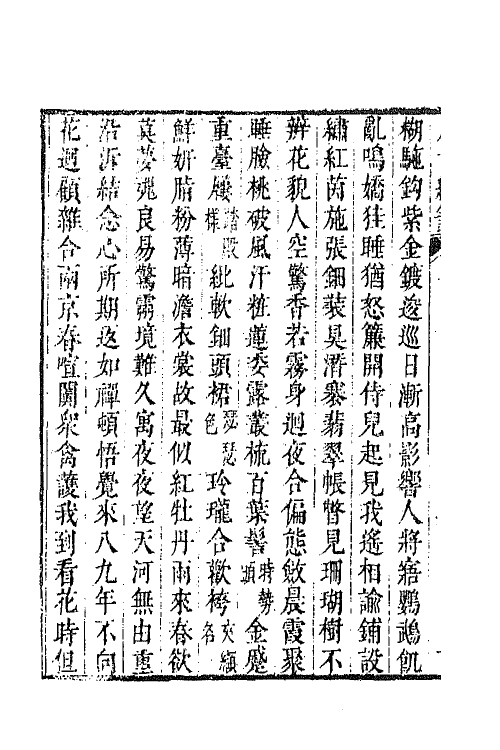 糊駞鈎紫金鍍逡巡日漸高影響人將寤鸚鵡飢
亂鳴嬌㹱睡猶怒簾開侍兒起見我遙相諭鋪設
繡紅茵施張鈿裝具潛褰翡翠帳瞥見珊瑚樹不
辨花貌人空驚香若霧身迴夜合偏態斂晨霞聚
睡臉桃破風汗粧蓮委露叢梳百葉髻時勢頭金蹙
重臺屨踏殿樣紕軟鈿頭裙瑟瑟色玲瓏合歡袴夾纈名
鮮妍脂粉薄暗澹衣裳故最似紅牡丹雨來春欲
莫夢䰟良易驚靈境難久寓夜夜望天河無由重
沿泝結念心所期返如禪頓悟覺來八九年不向
花迴顧雜合兩京春喧闐衆禽護我到看花時但